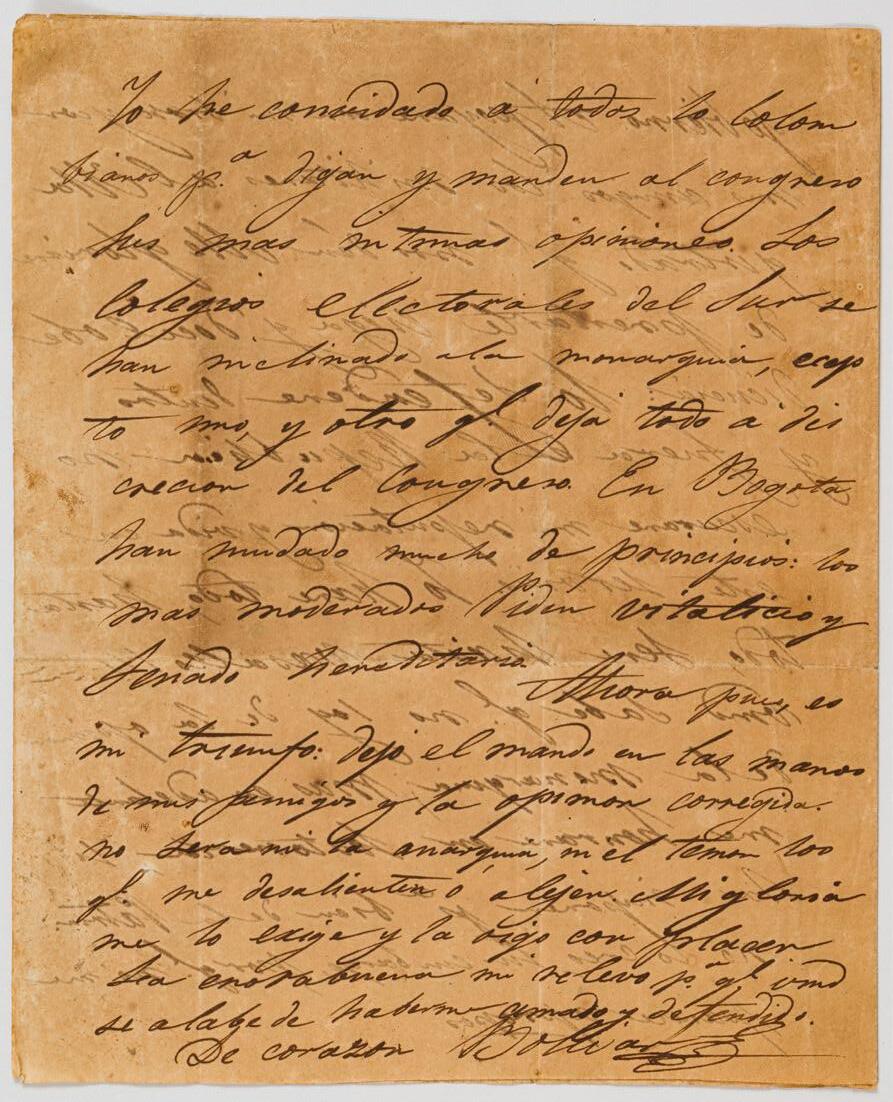 Yo he convidado a' todos lo Colom
bianos p.ª digan y manden al congreso
sus mas intimas opiniones. Los
Colegios electorales del Sur se
han inclinado ala monarquia, ecep
to uno, y otro q.e deja todo a' dis
crecion del Congreso. En Bogota
han mudado mucho de principios: los
mas moderados Piden vitalicio y
Senado hereditario. Ahora pues, es
mi triumfo: dejo el mando en las manos
de mis amigos y la opinion corregida.
no sera ni la anarquia, ni el temor los
q.e me desalienten ó alejen. Mi gloria
me lo exige y la oigo con placer
Sea enorabuena mi relevo p.ª q.e vmd
se alabe de haberme amado y defendido.
De corazon Bolivar